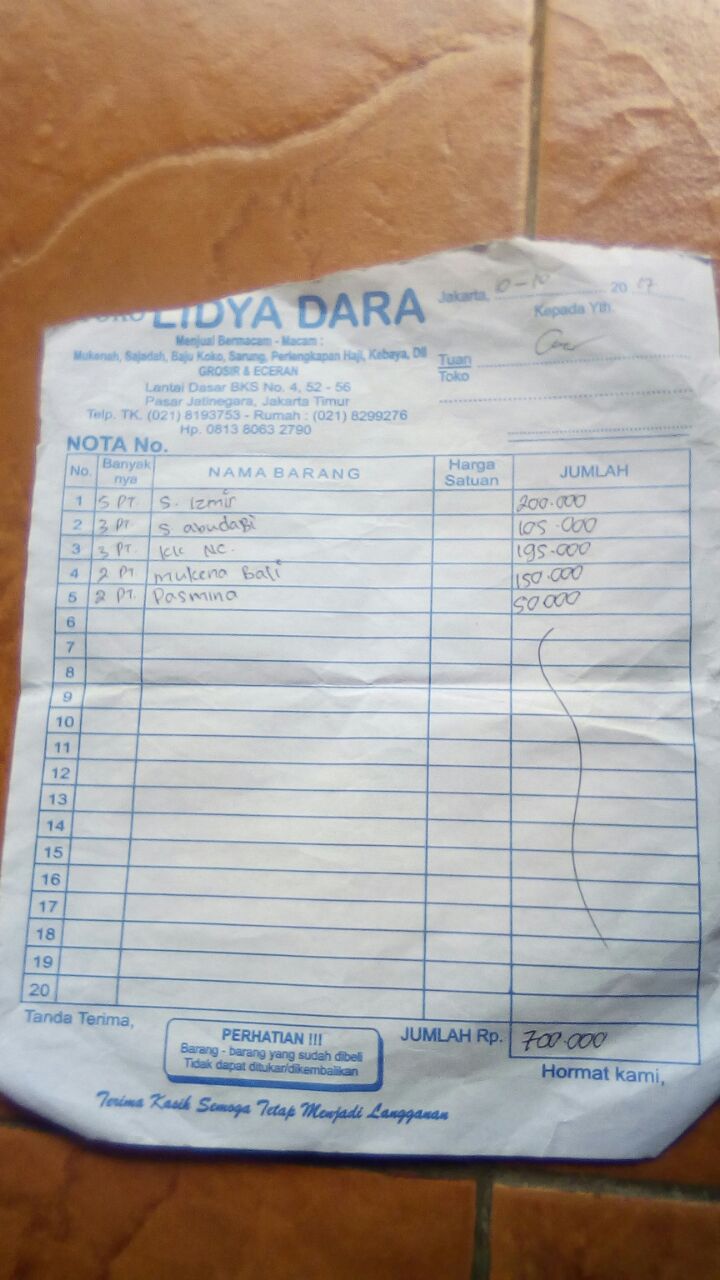 LIDYA DARA
Menjual Bermacam - Macam :
Mukenah, Sajadah, Baju Koko, Sarung, Perlengkapan Haji, Kebaya, Dll
GROSIR & ECERAN
Lantai Dasar BKS No. 4, 52 - 56
Pasar Jatinegara, Jakarta Timur
Telp. TK. (021) 8193753 - Rumah : (021) 8299276
Hp. 0813 8063 2790
Jakarta, 10-10 20 17
Kepada Yth.
Tuan
Toko
NOTA No.
No. Banyak nya NAMA BARANG Harga Satuan JUMLAH
1 5 PT. S. Izmir 200.000
2 3 PT. S abudabi 105.000
3 3 PT. KK NC. 195.000
4 2 PT mukena Bali 150.000
5 2 PT. Pasmina 50.000
6
7
8
9
10
11
12
13
14
15
16
17
18
19
20
Tanda Terima,
PERHATIAN !!!
Barang - barang yang sudah dibeli
Tidak dapat ditukar/dikembalikan
JUMLAH Rp. 700.000
Hormat kami,
Terima Kasih Semoga Tetap Menjadi Langganan